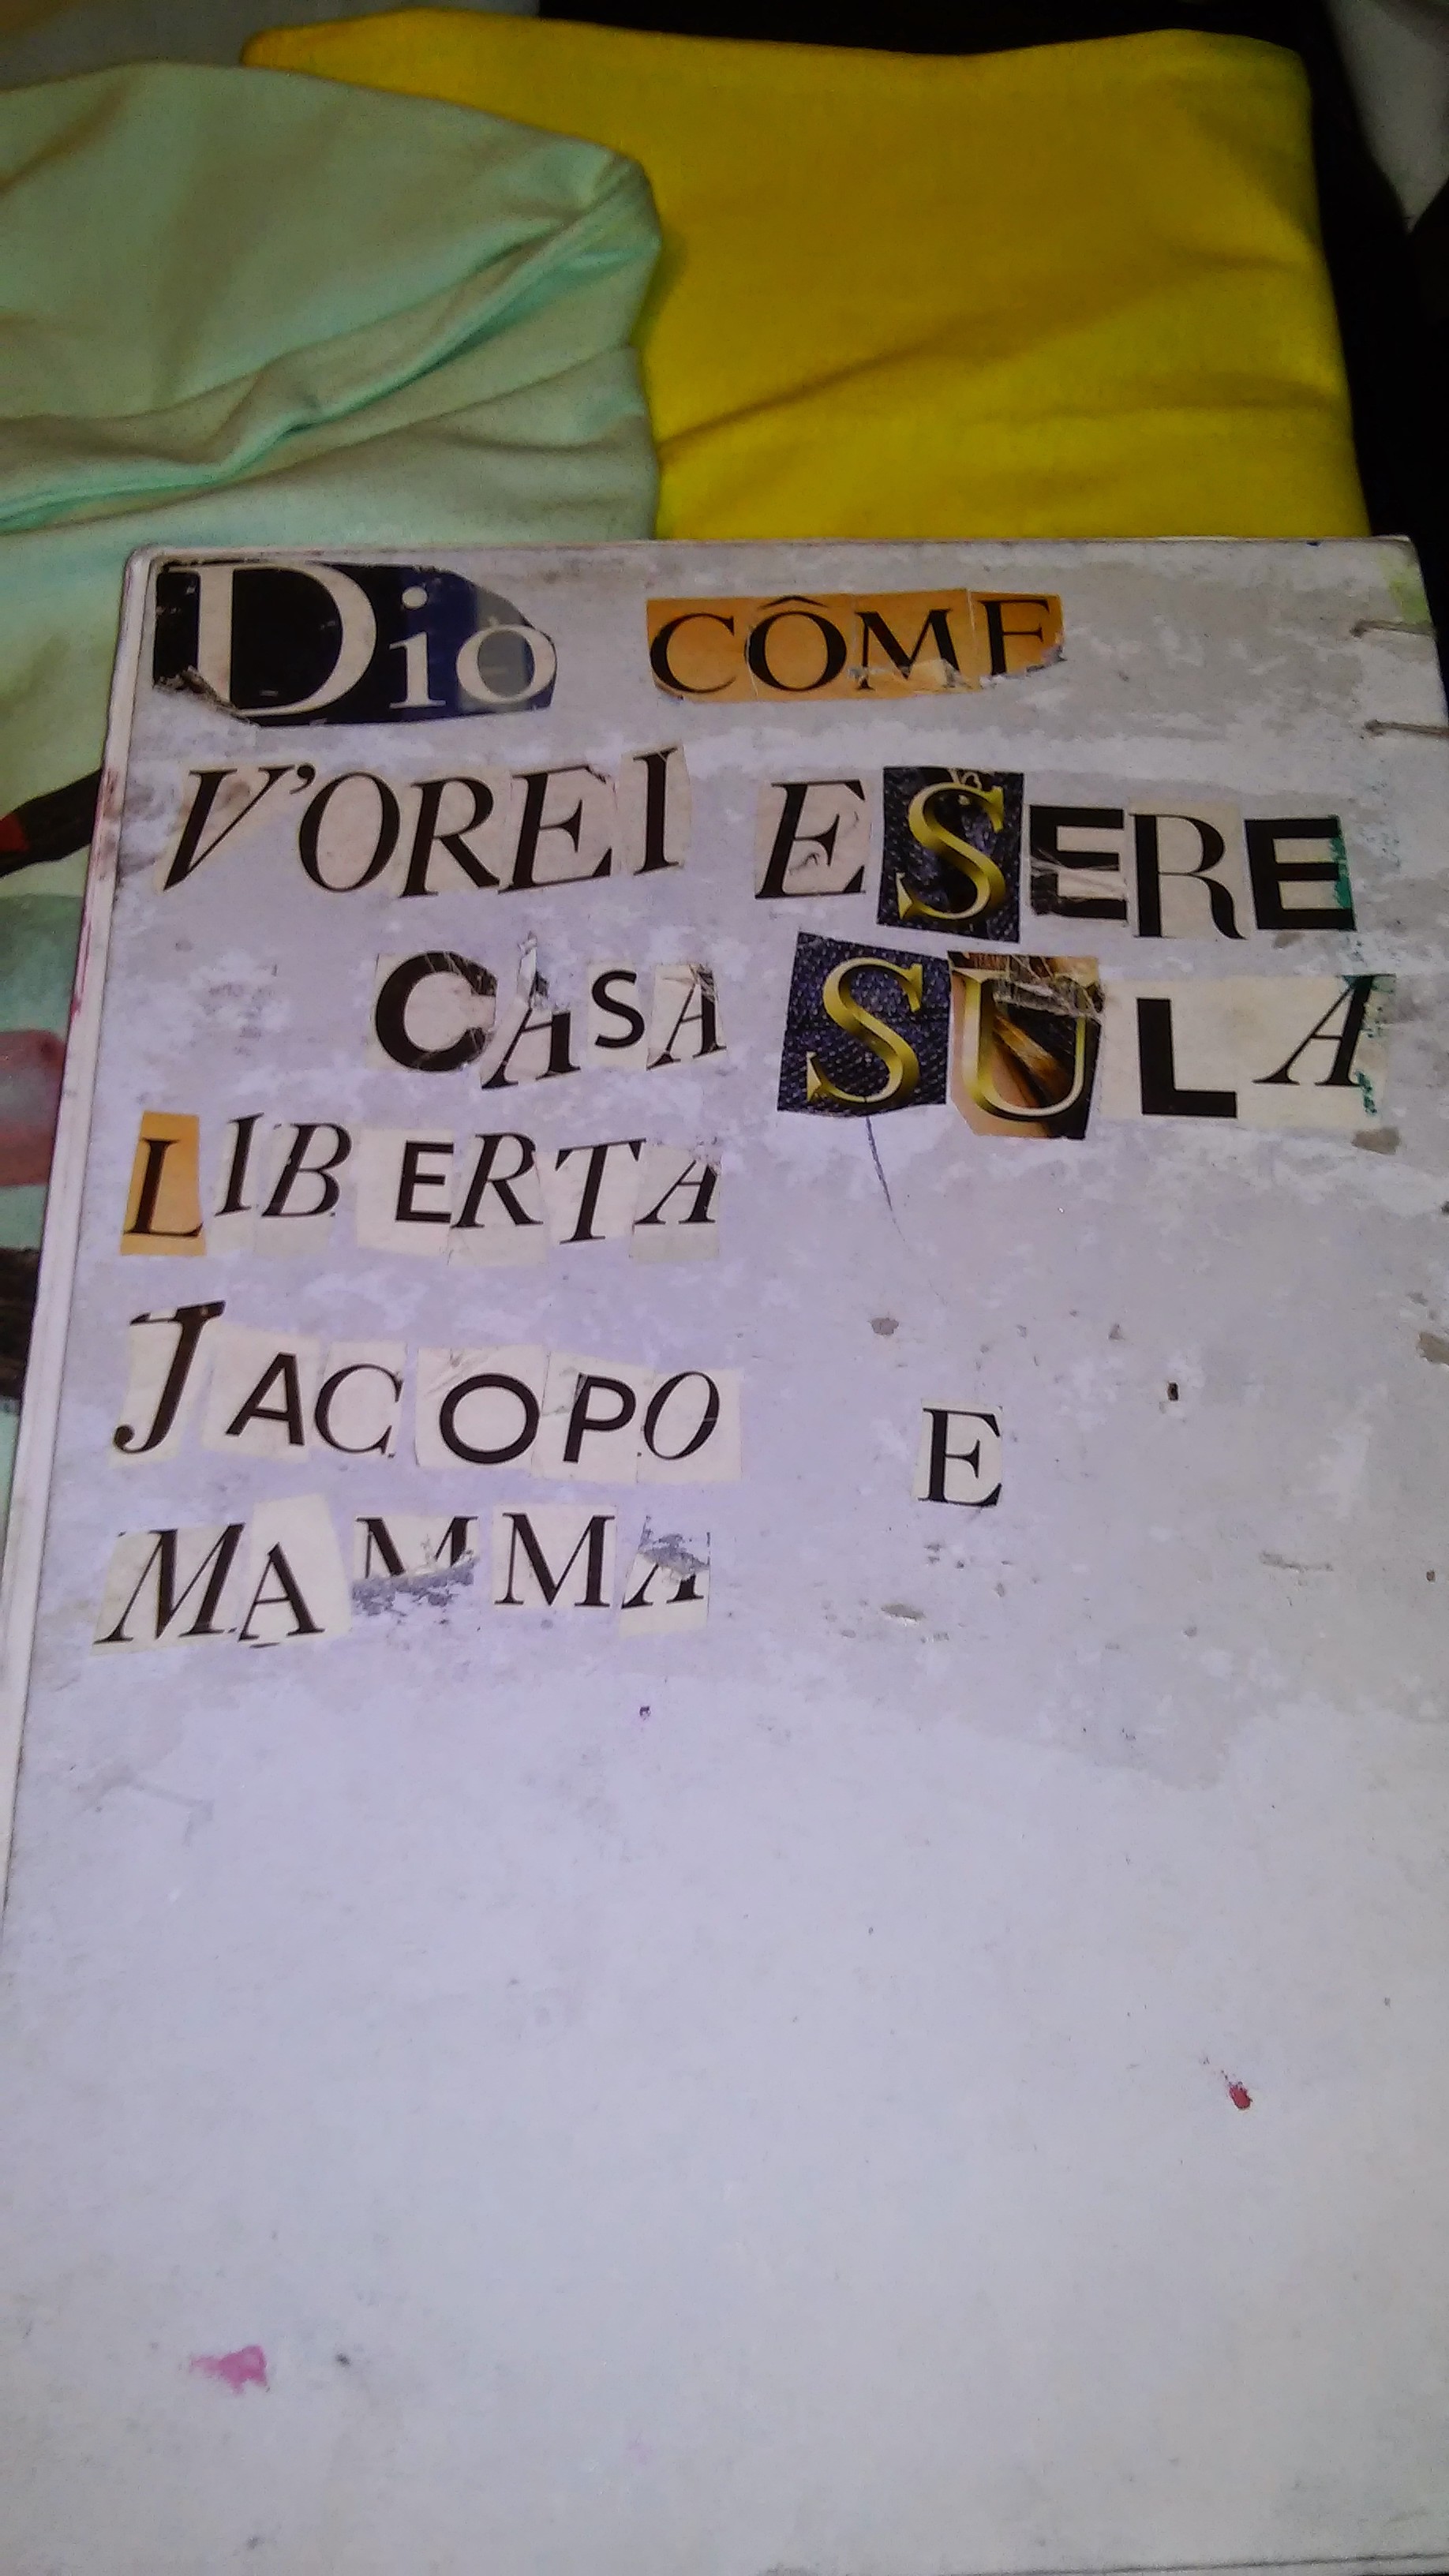 Dio CÔME
V'OREI ESERE
CASA SULA
LIBERTA
JACOPO E
MAMMA